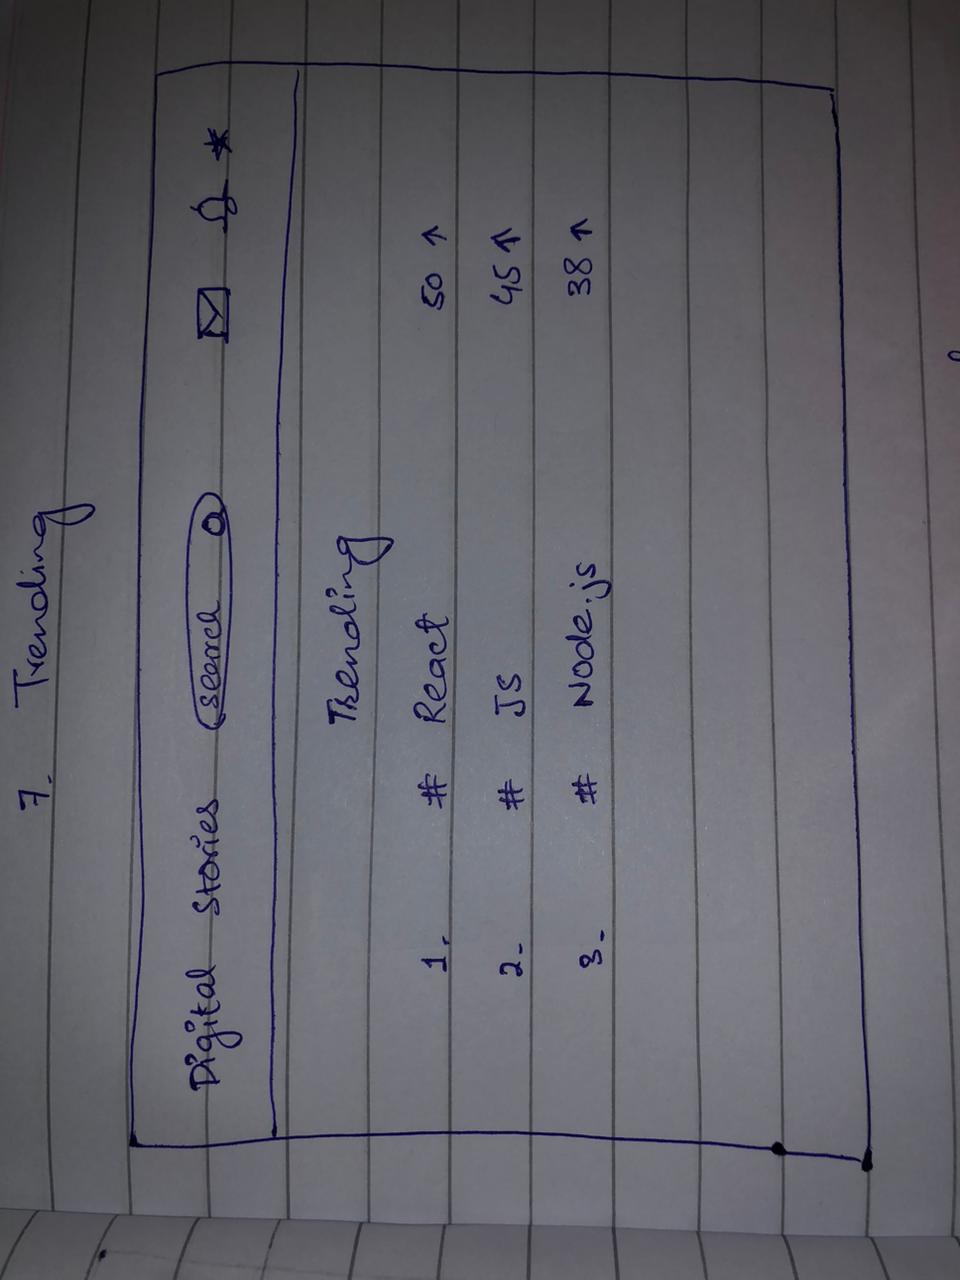 7. Trending
Digital Stories search
Trending
1. # React 50 ↑
2. # JS 45 ↑
3. # Node.js 38 ↑